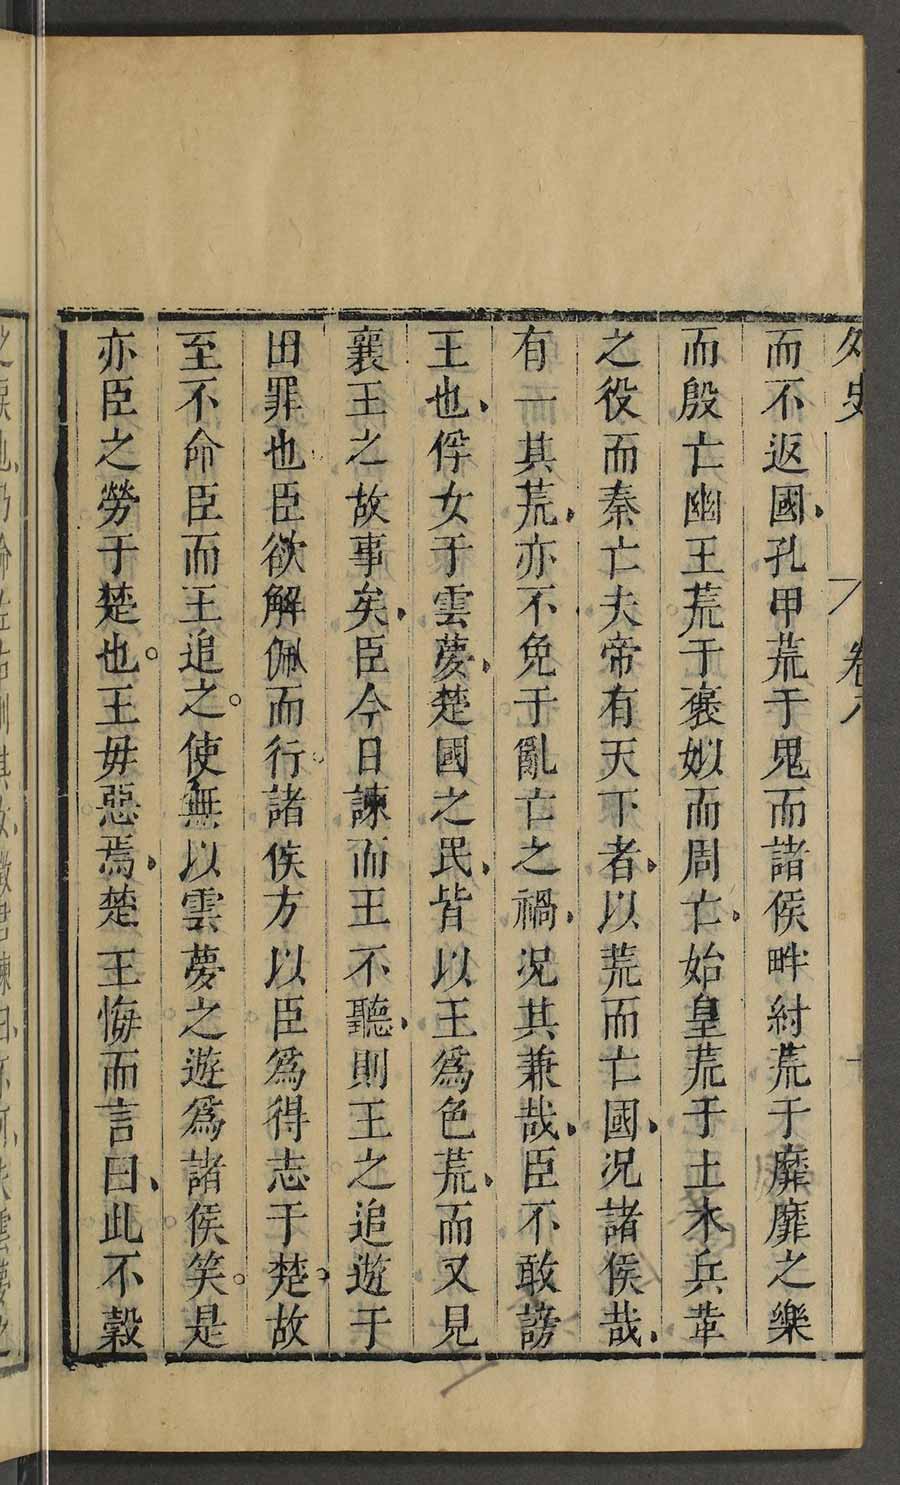 外史 卷六
而不返國、孔甲荒于鬼而諸侯畔紂荒于靡靡之樂
而殷亡幽王荒于褒姒而周亡、始皇荒于土木兵革
之役而秦亡夫帝有天下者、以荒而亡國、況諸侯哉、
有一其荒、亦不免于亂亡之禍、況其兼哉、臣不敢謗
王也、俘女于雲夢、楚國之民、皆以王爲色荒、而又見
襄王之故事矣、臣今日諫而王不聽、則王之追遊于
田罪也、臣欲解佩而行、諸侯方以臣爲得志于楚、故
至不命臣而王追之。使無以雲夢之遊爲諸侯笑。是
亦臣之勞于楚也。王毋惡焉、楚王悔而言曰、此不穀